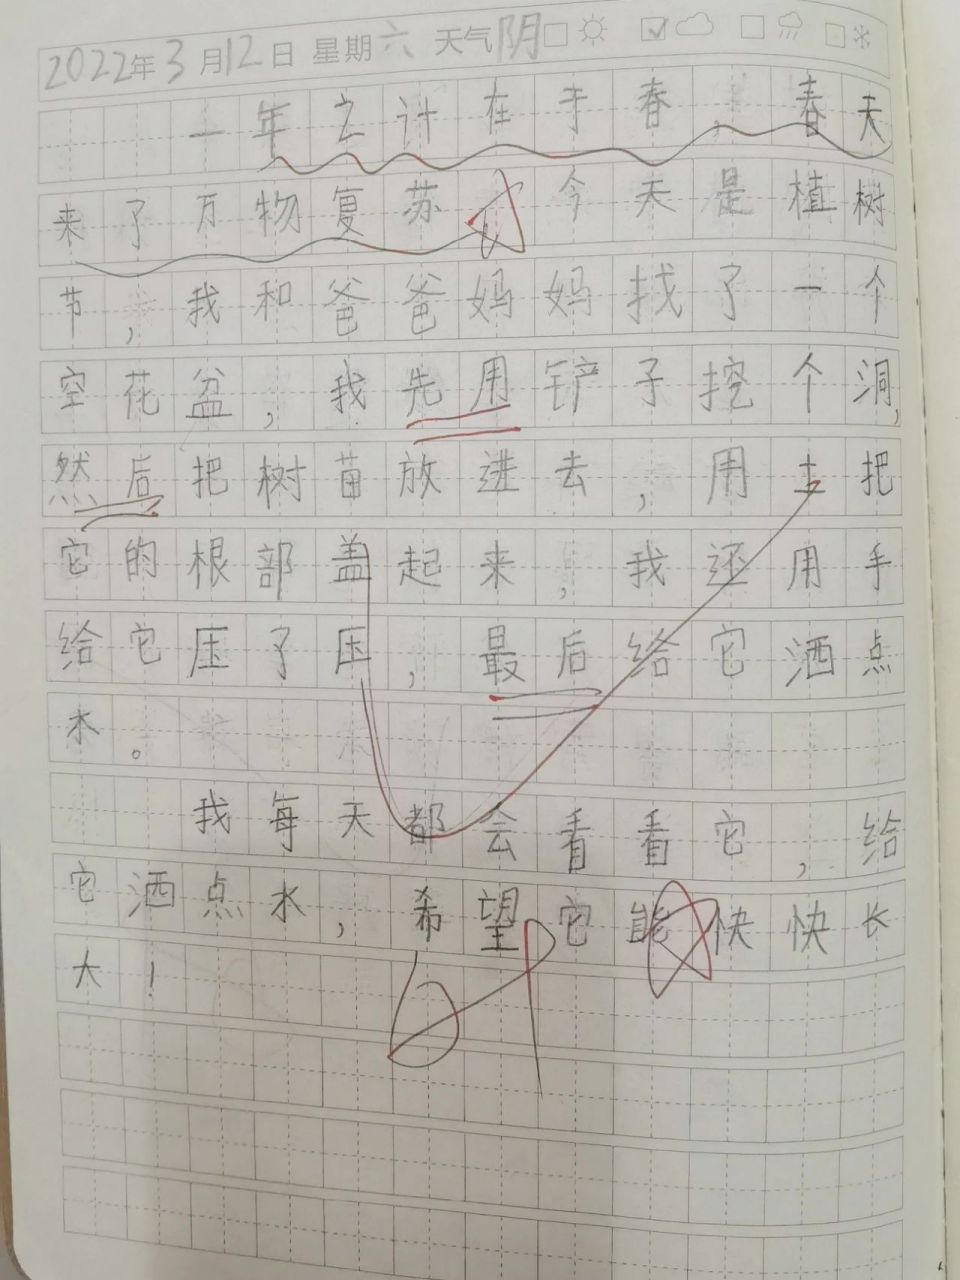 2022年3月12日 星期六 天气阴
一年之计在于春，春天
来了万物复苏。今天是植树
节，我和爸爸妈妈找了一个
空花盆，我先用铲子挖个洞，
然后把树苗放进去，用土把
它的根部盖起来，我还用手
给它压了压，最后给它洒点
水。
我每天都会看看它，给
它洒点水，希望它能快快长
大！